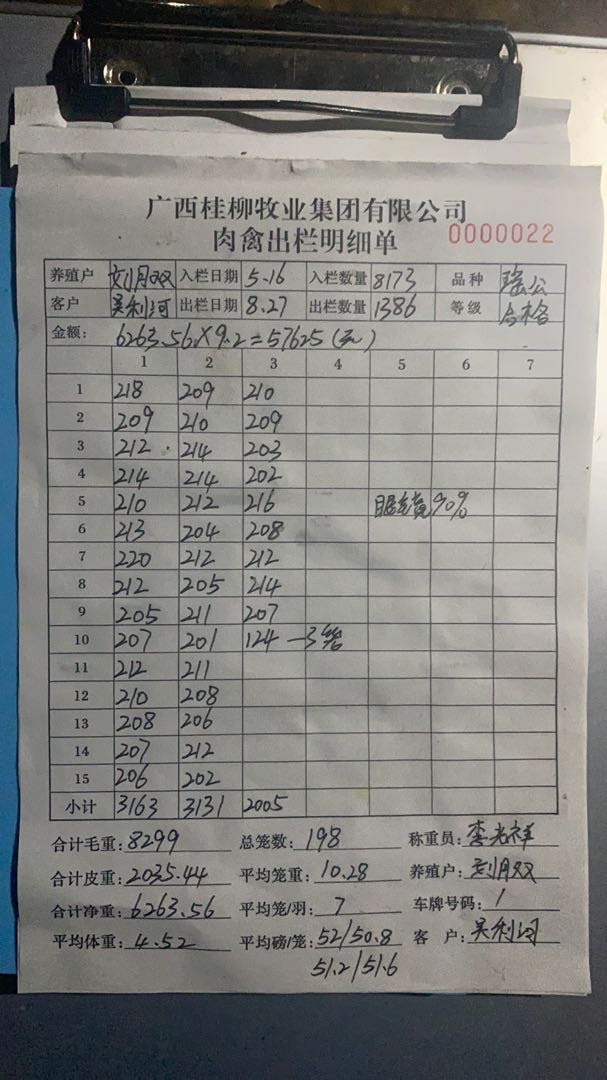 广西桂柳牧业集团有限公司
肉禽出栏明细单 0000022
养殖户 刘月双 入栏日期 5.16 入栏数量 8173 品种 瑶公
客户 吴利河 出栏日期 8.27 出栏数量 1386 等级 合格
金额: 6263.56×9.2=57625(元)
1 2 3 4 5 6 7
1 218 209 210
2 209 210 209
3 212 214 203
4 214 214 202
5 210 212 216 90%
6 213 204 208
7 220 212 212
8 212 205 214
9 205 211 207
10 207 201 124 —3笼
11 212 211
12 210 208
13 208 206
14 207 212
15 206 202
小计 3163 3131 2005
合计毛重: 8299 总笼数: 198 称重员: 李光祥
合计皮重: 2035.44 平均笼重: 10.28 养殖户: 刘月双
合计净重: 6263.56 平均笼/羽: 7 车牌号码: 1
平均体重: 4.52 平均磅/笼: 52/50.8 客户: 吴利河
51.2/51.6